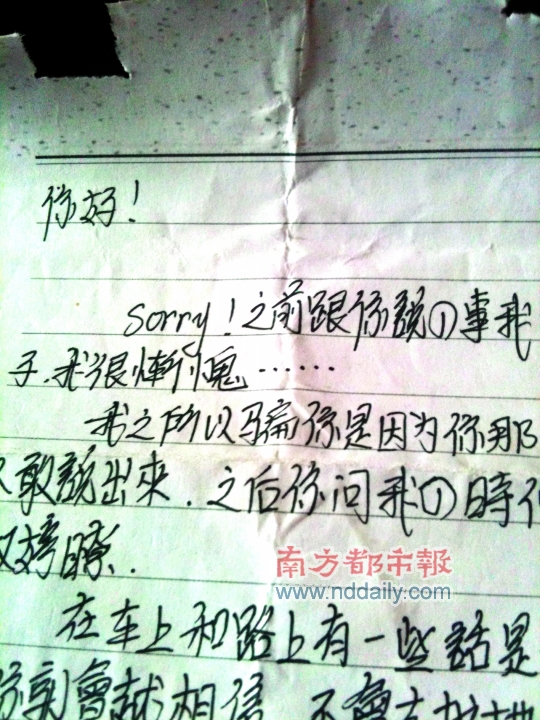 你好!
Sorry!之前跟你説①事我
子.我很慚愧……
我之所以骗你是因为你那
敢説出來.之后你问我①時
南方都市報
www.nddaily.com
在车上和路上有一些話是
會越相信 不會